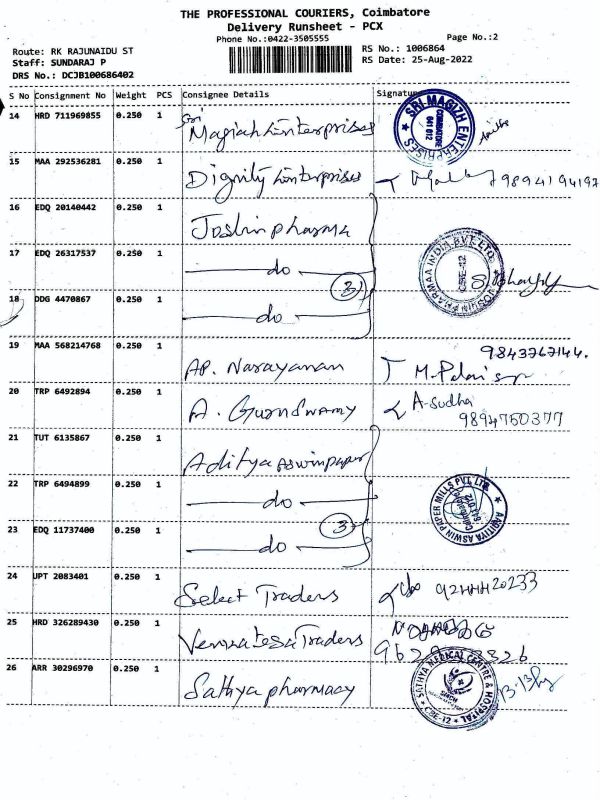 THE PROFESSIONAL COURIERS, Coimbatore
Delivery Runsheet - PCX
Phone No.:0422-3505555
Page No.:2
Route: RK RAJUNAIDU ST
Staff: SUNDARAJ P
DRS No.: DCJB100686402
RS No.: 1006864
RS Date: 25-Aug-2022
S No Consignment No Weight PCS Consignee Details Signature
14 HRD 711969855 0.250 1 Sri Magizh Enterprises
SRI MAGIZH ENTERPRISES COIMBATORE 641 012
15 MAA 292536281 0.250 1 Dignity Enterprises 9894194197
16 EDQ 20140442 0.250 1 Joshin pharma
17 EDQ 26317537 0.250 1 do
JOSHIN PHARMAA INDIA PVT. LTD. CBE-12
3
18 DDG 4470867 0.250 1 do
19 MAA 568214768 0.250 1 AP. Narayanan 9843767144.
20 TRP 6492894 0.250 1 A. Guruswamy A-Sudha
9894750377
21 TUT 6135867 0.250 1 Aditya Aswin paper
22 TRP 6494899 0.250 1 do
ADITIYA ASWIN PAPER MILLS PVT. LTD. Coimbatore 641 012
3
23 EDQ 11737400 0.250 1 do
24 UPT 2083401 0.250 1 Select Traders
25 HRD 326289430 0.250 1 Venkatesa Traders
26 ARR 30296970 0.250 1 Sathya pharmacy
SATHYA MEDICAL CENTRE & HOSPITAL CBE-12